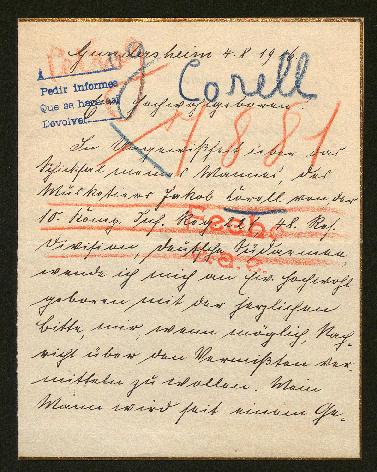 Gundersheim 4.8.19
Corell
Pedir informes
Que se
Devolver
Hochwohlgeboren
1881
In Ungewißheit über das
Schicksal meines Mannes des
Musketiers Jakob Corell von der
10. Komp. Inf. 48. Res.
Division, deutsche Südarmee,
wende ich mich an Ew. Hochwohl
geboren mit der herzlichen
Bitte, mir, wenn möglich, Nach-
richt über den Vermißten ver-
mitteln zu wollen. Mein
Mann wird seit einem Ge-